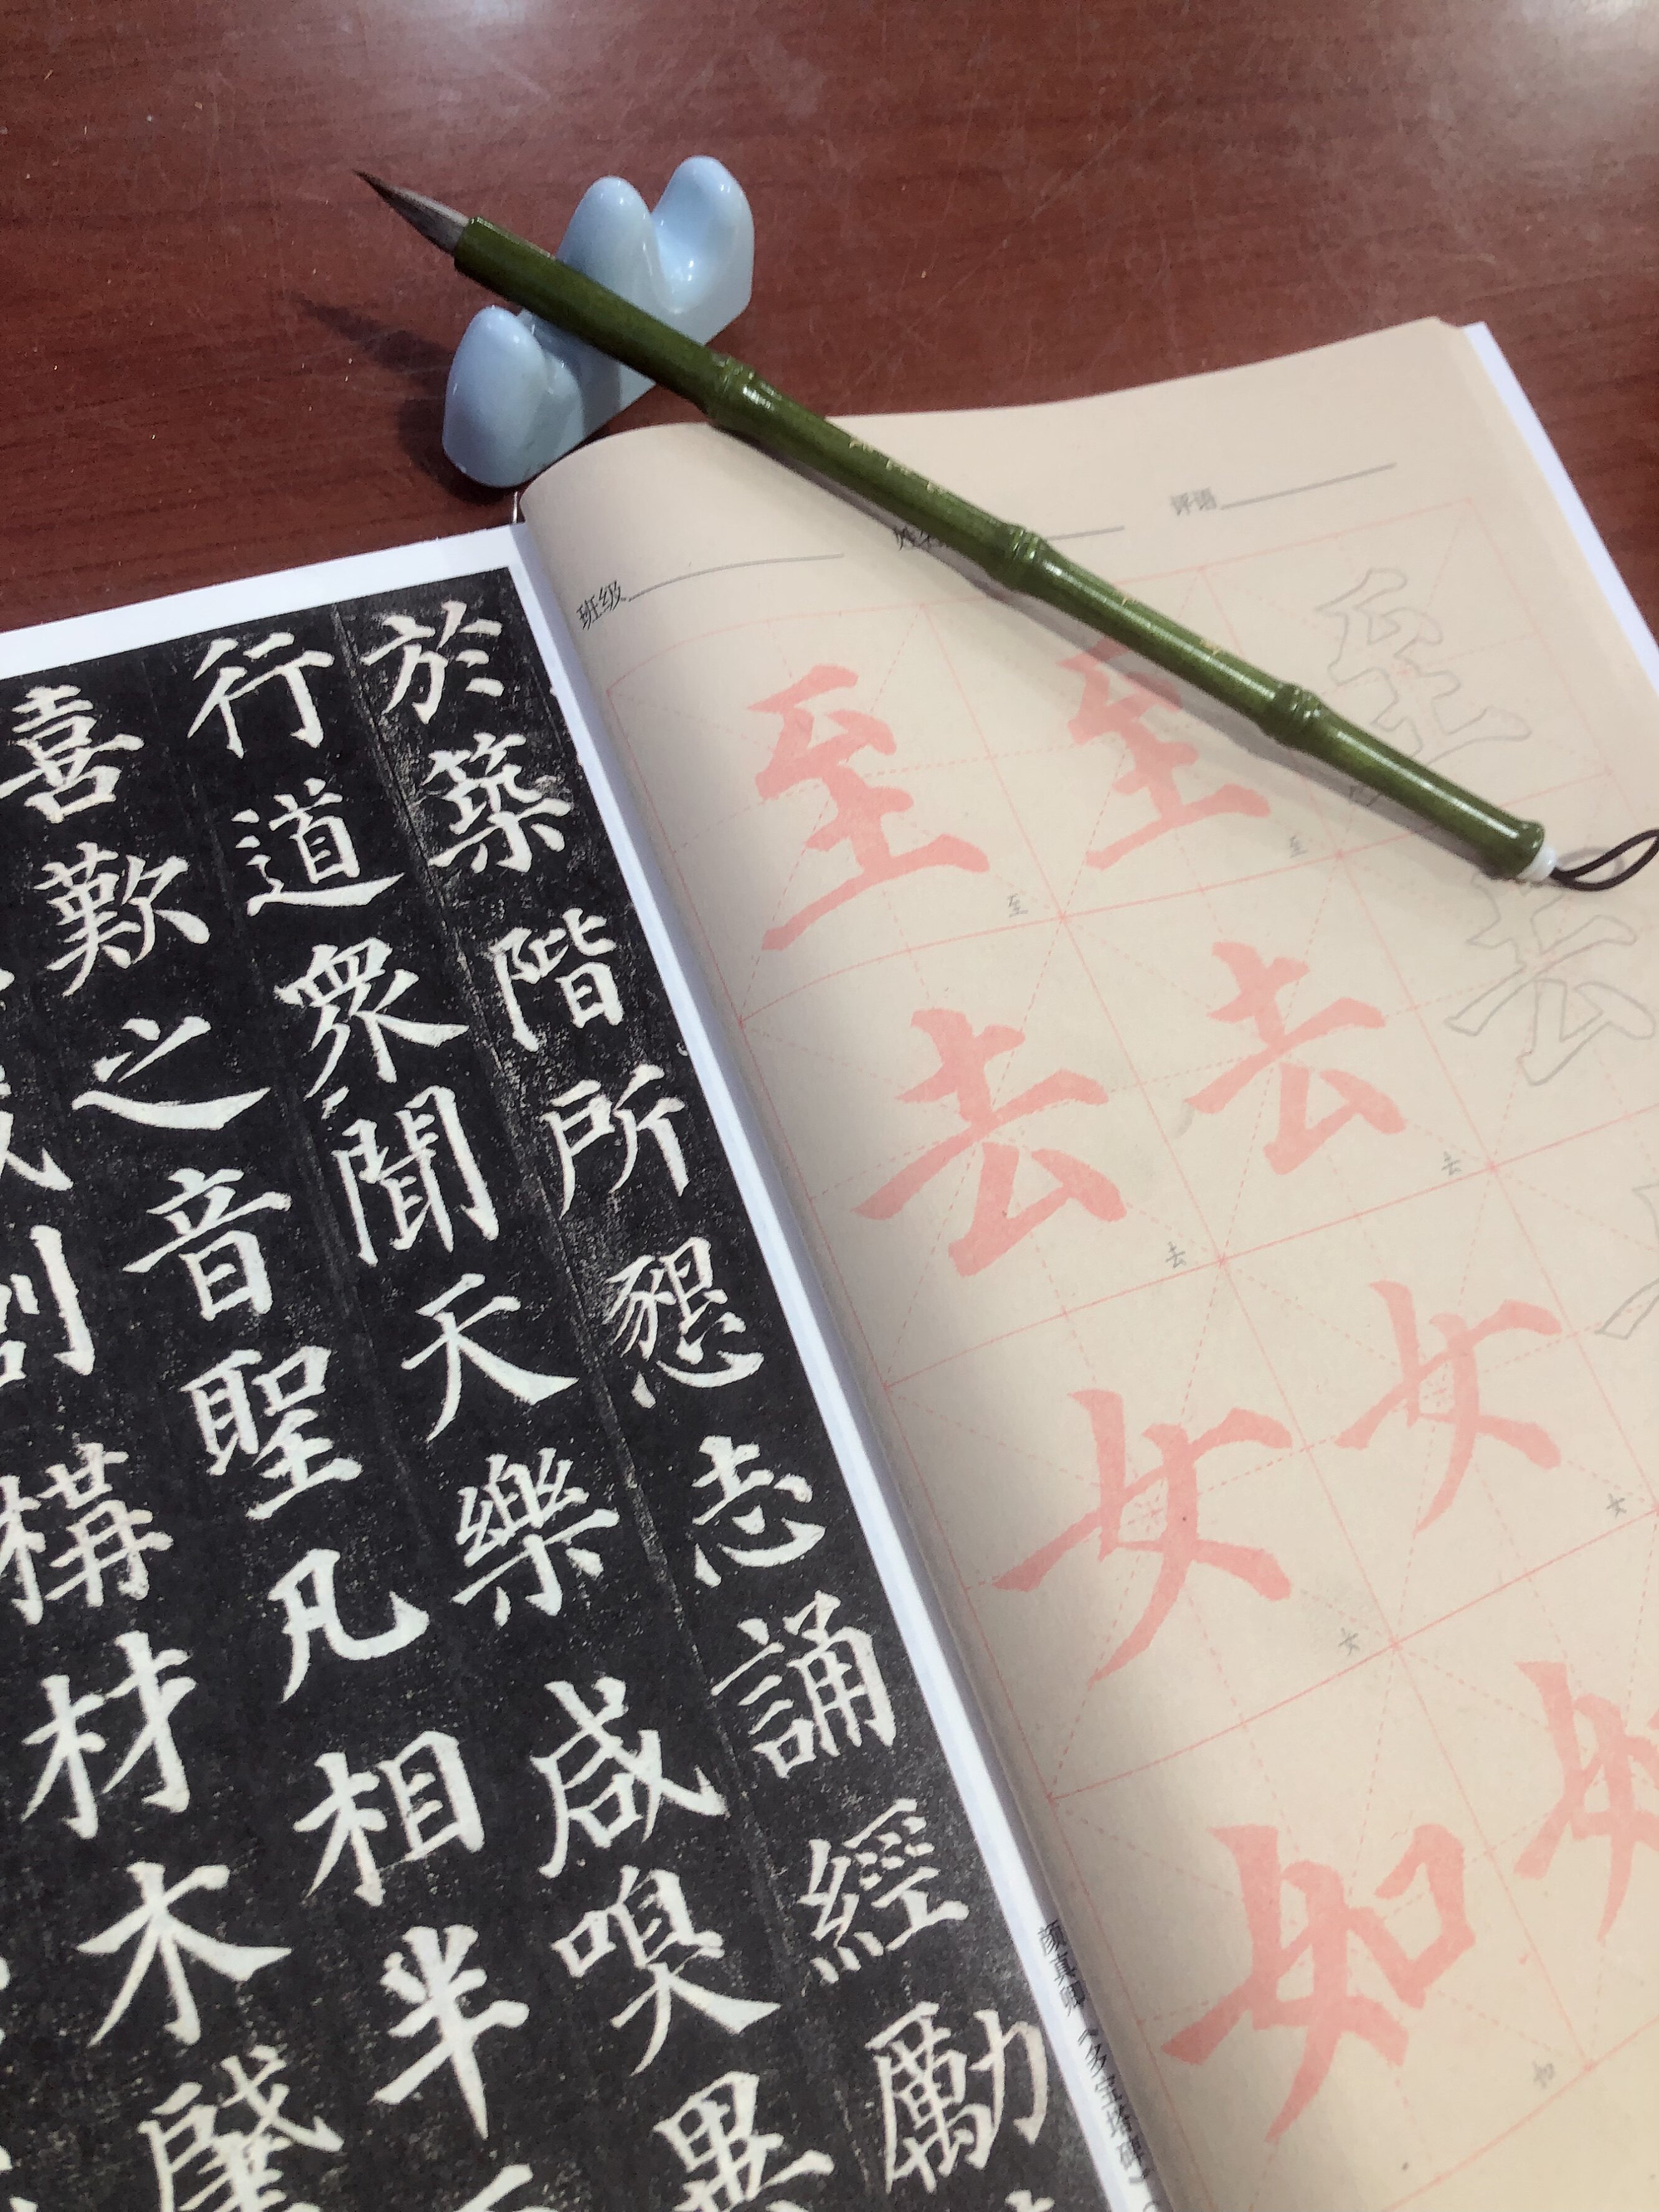 於築階所懇志誦經勵
行道衆聞天樂咸嗅異
喜歎之音聖凡相半
構材木肇
班级 评语
至 至 至
至 至
去 去 去
去 去
女 女
女 女
如
如
颜真卿《多宝塔碑》